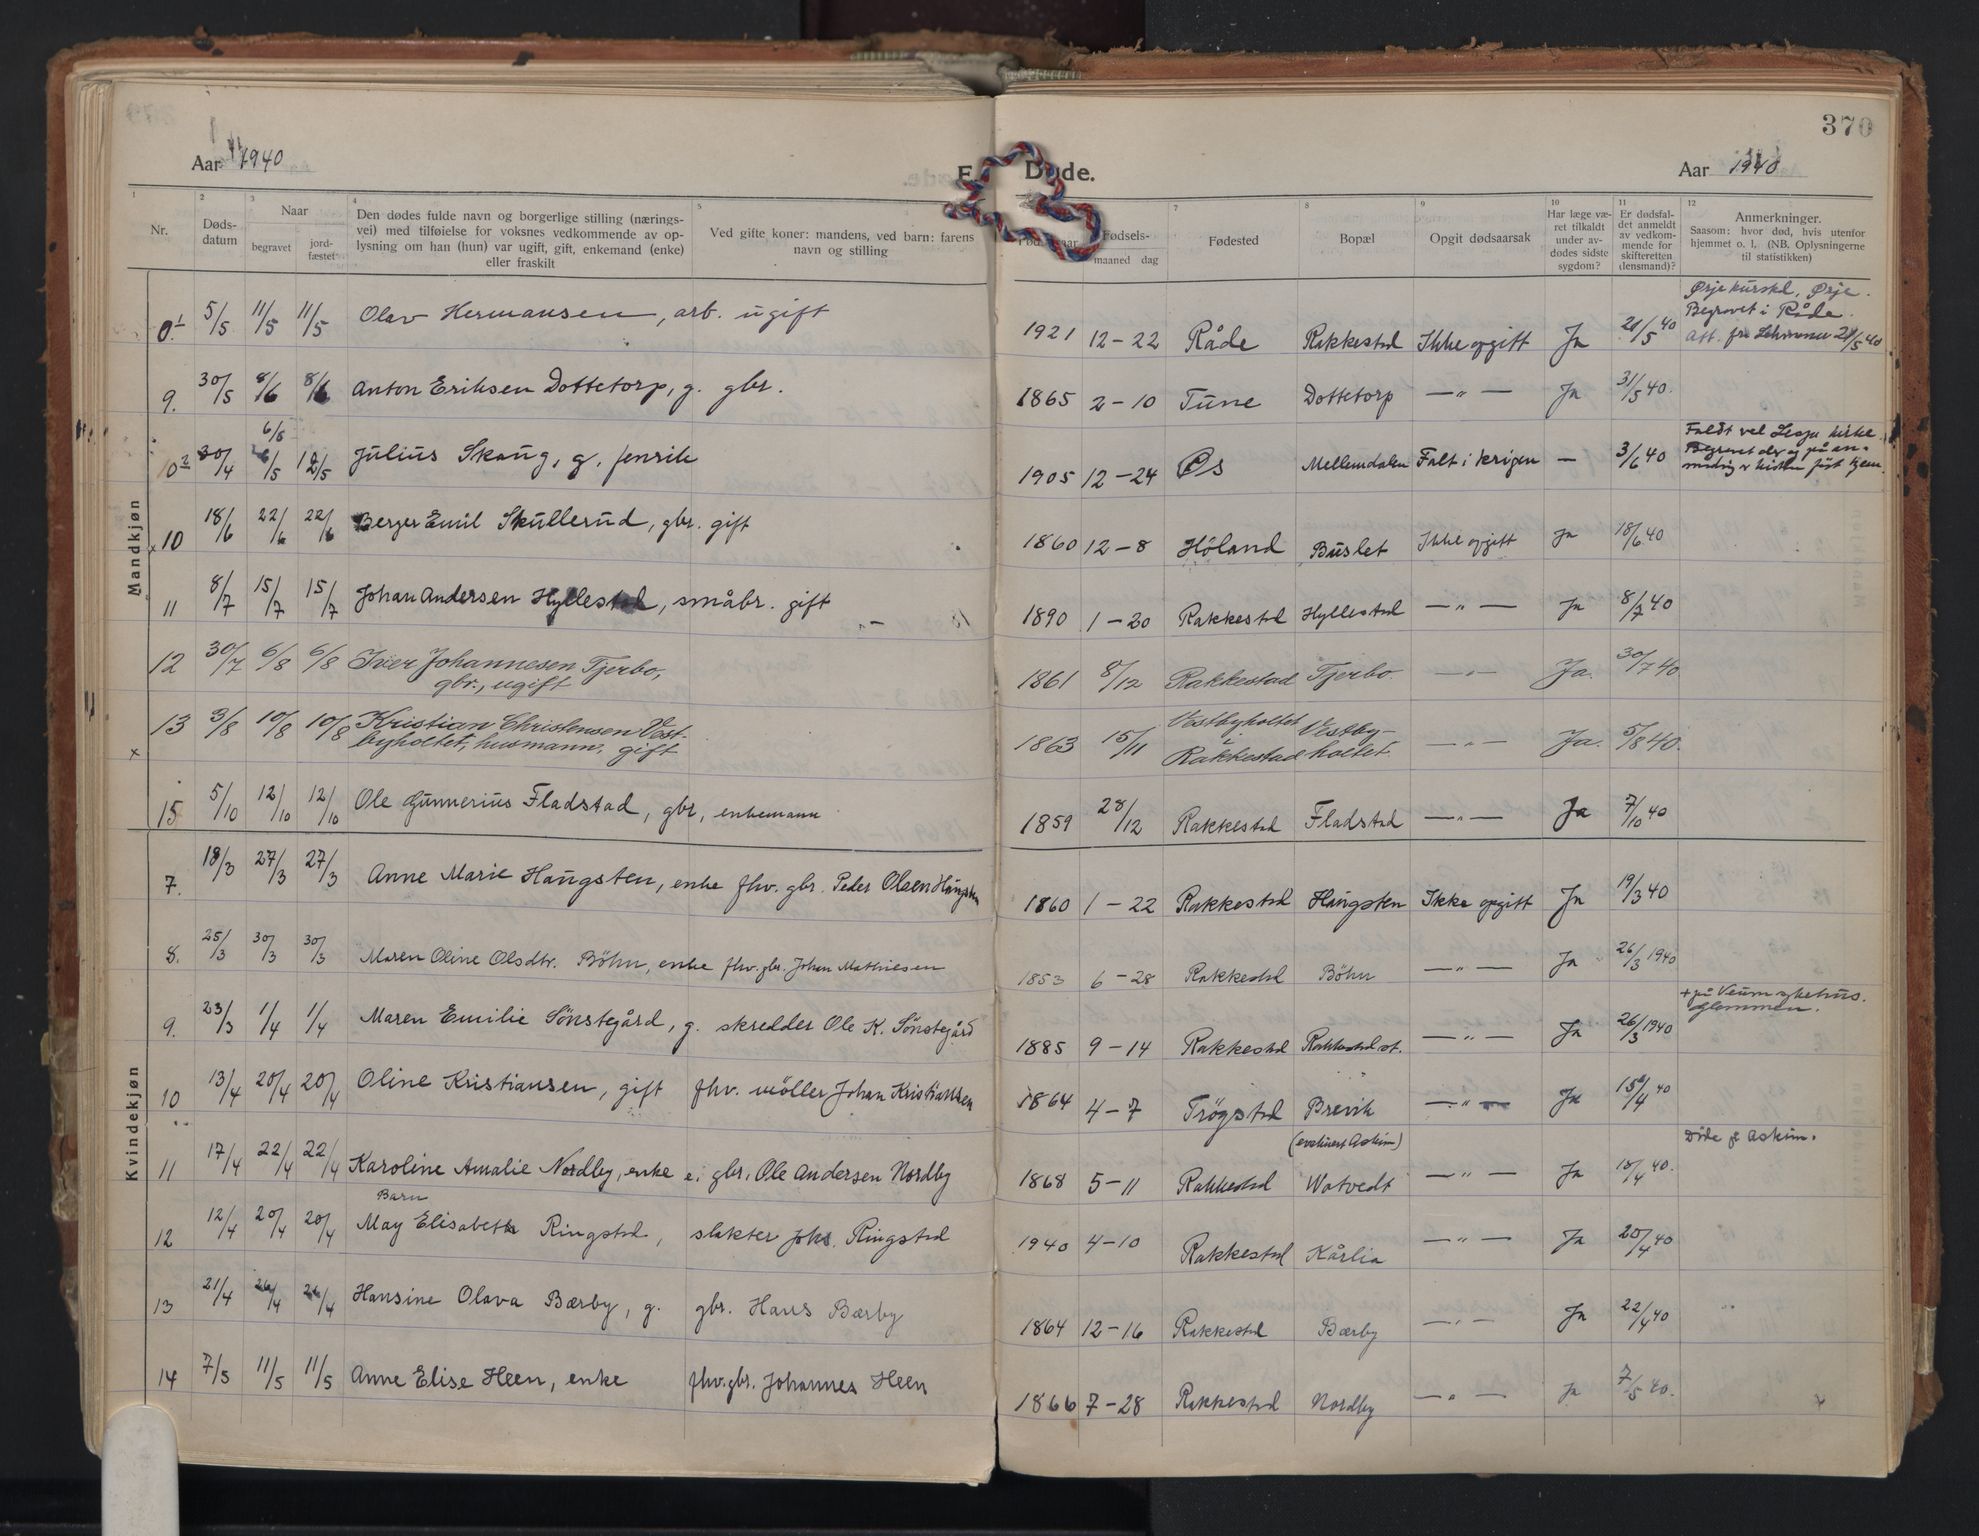 370
Aar 1940
Døde.
Aar 1940
1 Nr.
2 Døds-datum
3 Naar begravet jord-fæstet
4 Den dødes fulde navn og borgerlige stilling (nærings-
vei) med tilføielse for voksnes vedkommende av op-
lysning om han (hun) var ugift, gift, enkemand (enke)
eller fraskilt
5 Ved gifte koner: mandens, ved barn: farens
navn og stilling
Fødselsmaaned dag
7 Fødested
8 Bopæl
9 Opgit dødsaarsak
10 Har læge væ-
ret tilkaldt
under av-
dødes sidste
sygdom?
11 Er dødsfal-
det anmeldt
av vedkom-
mende for
skifteretten
(lensmand)?
12 Anmerkninger.
Saasom: hvor død, hvis utenfor
hjemmet o. l. (NB. Oplysningerne
til statistikken)
Mandkjøn
0¹ 5/5 11/5 11/5 Olav Hermansen, arb. ugift 1921 12-22 Råde Rakkestad Ikke opgitt Ja 21/5 40 Ørje . Begravet i Råde. Att. fra 21/5 40
9. 30/5 8/6 8/6 Anton Eriksen Dottetorp, g. gbr. 1865 2-10 Tune Dottetorp —"— Ja 31/5 40.
10² 30/4 6/5 12/5 Julius Skaug, g. fenrik 1905 12-24 Øs Mellemdalen Falt i krigen — 3/6 40 Faldt ved Lesja kirke
× 10 18/6 22/6 22/6 Berger Emil Skullerud, gbr. gift 1860 12-8 Höland Buslet Ikke opgitt Ja 18/6 40
11 8/7 15/7 15/7 Johan Andersen Hyllestad, småbr. gift 1890 1-20 Rakkestad Hyllestad —"— Ja 8/7 40
12 30/7 6/8 6/8 Iver Johannesen Tjerbo, 1861 8/12 Rakkestad Tjerbo. —"— Ja. 30/7 40
gbr., ugift
13 3/8 10/8 10/8 Kristian Christensen Vest- 1863 15/11 Vestbyholtet i Rakkestad Vestby-holtet. —"— Ja. 5/8 40.
× byholtet, husmann, gift
15 5/10 12/10 12/10 Ole Gunnerius Fladstad, gbr, enkemann 1859 28/12 Rakkestad Fladstad —"— Ja 7/10 40
Kvindekjøn
7. 18/3 27/3 27/3 Anne Marie Haugsten, enke fhv. gbr. Peder Olsen Haugsten 1860 1-22 Rakkestad Haugsten Ikke opgitt Ja 19/3 40
8. 25/3 30/3 30/3 Maren Oline Olsdtr. Böhn, enke fhv. gbr. Johan Mathiesen 1853 6-28 Rakkestad Böhn —"— Ja 26/3 1940
9. 23/3 1/4 1/4 Maren Emilie Sönstegård, g. skredder Ole K. Sönstegård 1885 9-14 Rakkestad Rakkestad st. —"— Ja 26/3 1940 + på Veum sykehus. Glemmen.
10 13/4 20/4 20/4 Oline Kristiansen, gift fhv. möller Johan Kristiansen 1864 4-7 Trögstad Brevik —"— Ja 15/4 40
11 17/4 22/4 22/4 Karoline Amalie Nordby, enke e. gbr. Ole Andersen Nordby 1868 5-11 Rakkestad (evakuert Askim) Watvedt —"— Ja 18/4 40. Döde i Askim.
12 12/4 20/4 20/4 Barn May Elisabeth Ringstad, slakter Johs. Ringstad 1940 4-10 Rakkestad Kårlia —"— Ja 20/4 40
13 21/4 26/4 26/4 Hansine Olava Bærby, g. gbr. Hans Bærby 1864 12-16 Rakkestad Bærby —"— Ja 22/4 40
14 7/5 11/5 11/5 Anne Elise Heen, enke fhv. gbr. Johannes Heen 1866 7-28 Rakkestad Nordby —"— Ja 7/5 40.